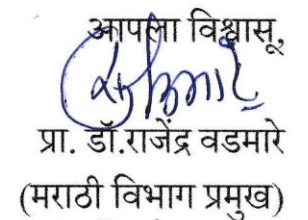 आपला विश्वासू,
प्रा. डॉ.राजेंद्र वडमारे
(मराठी विभाग प्रमुख)